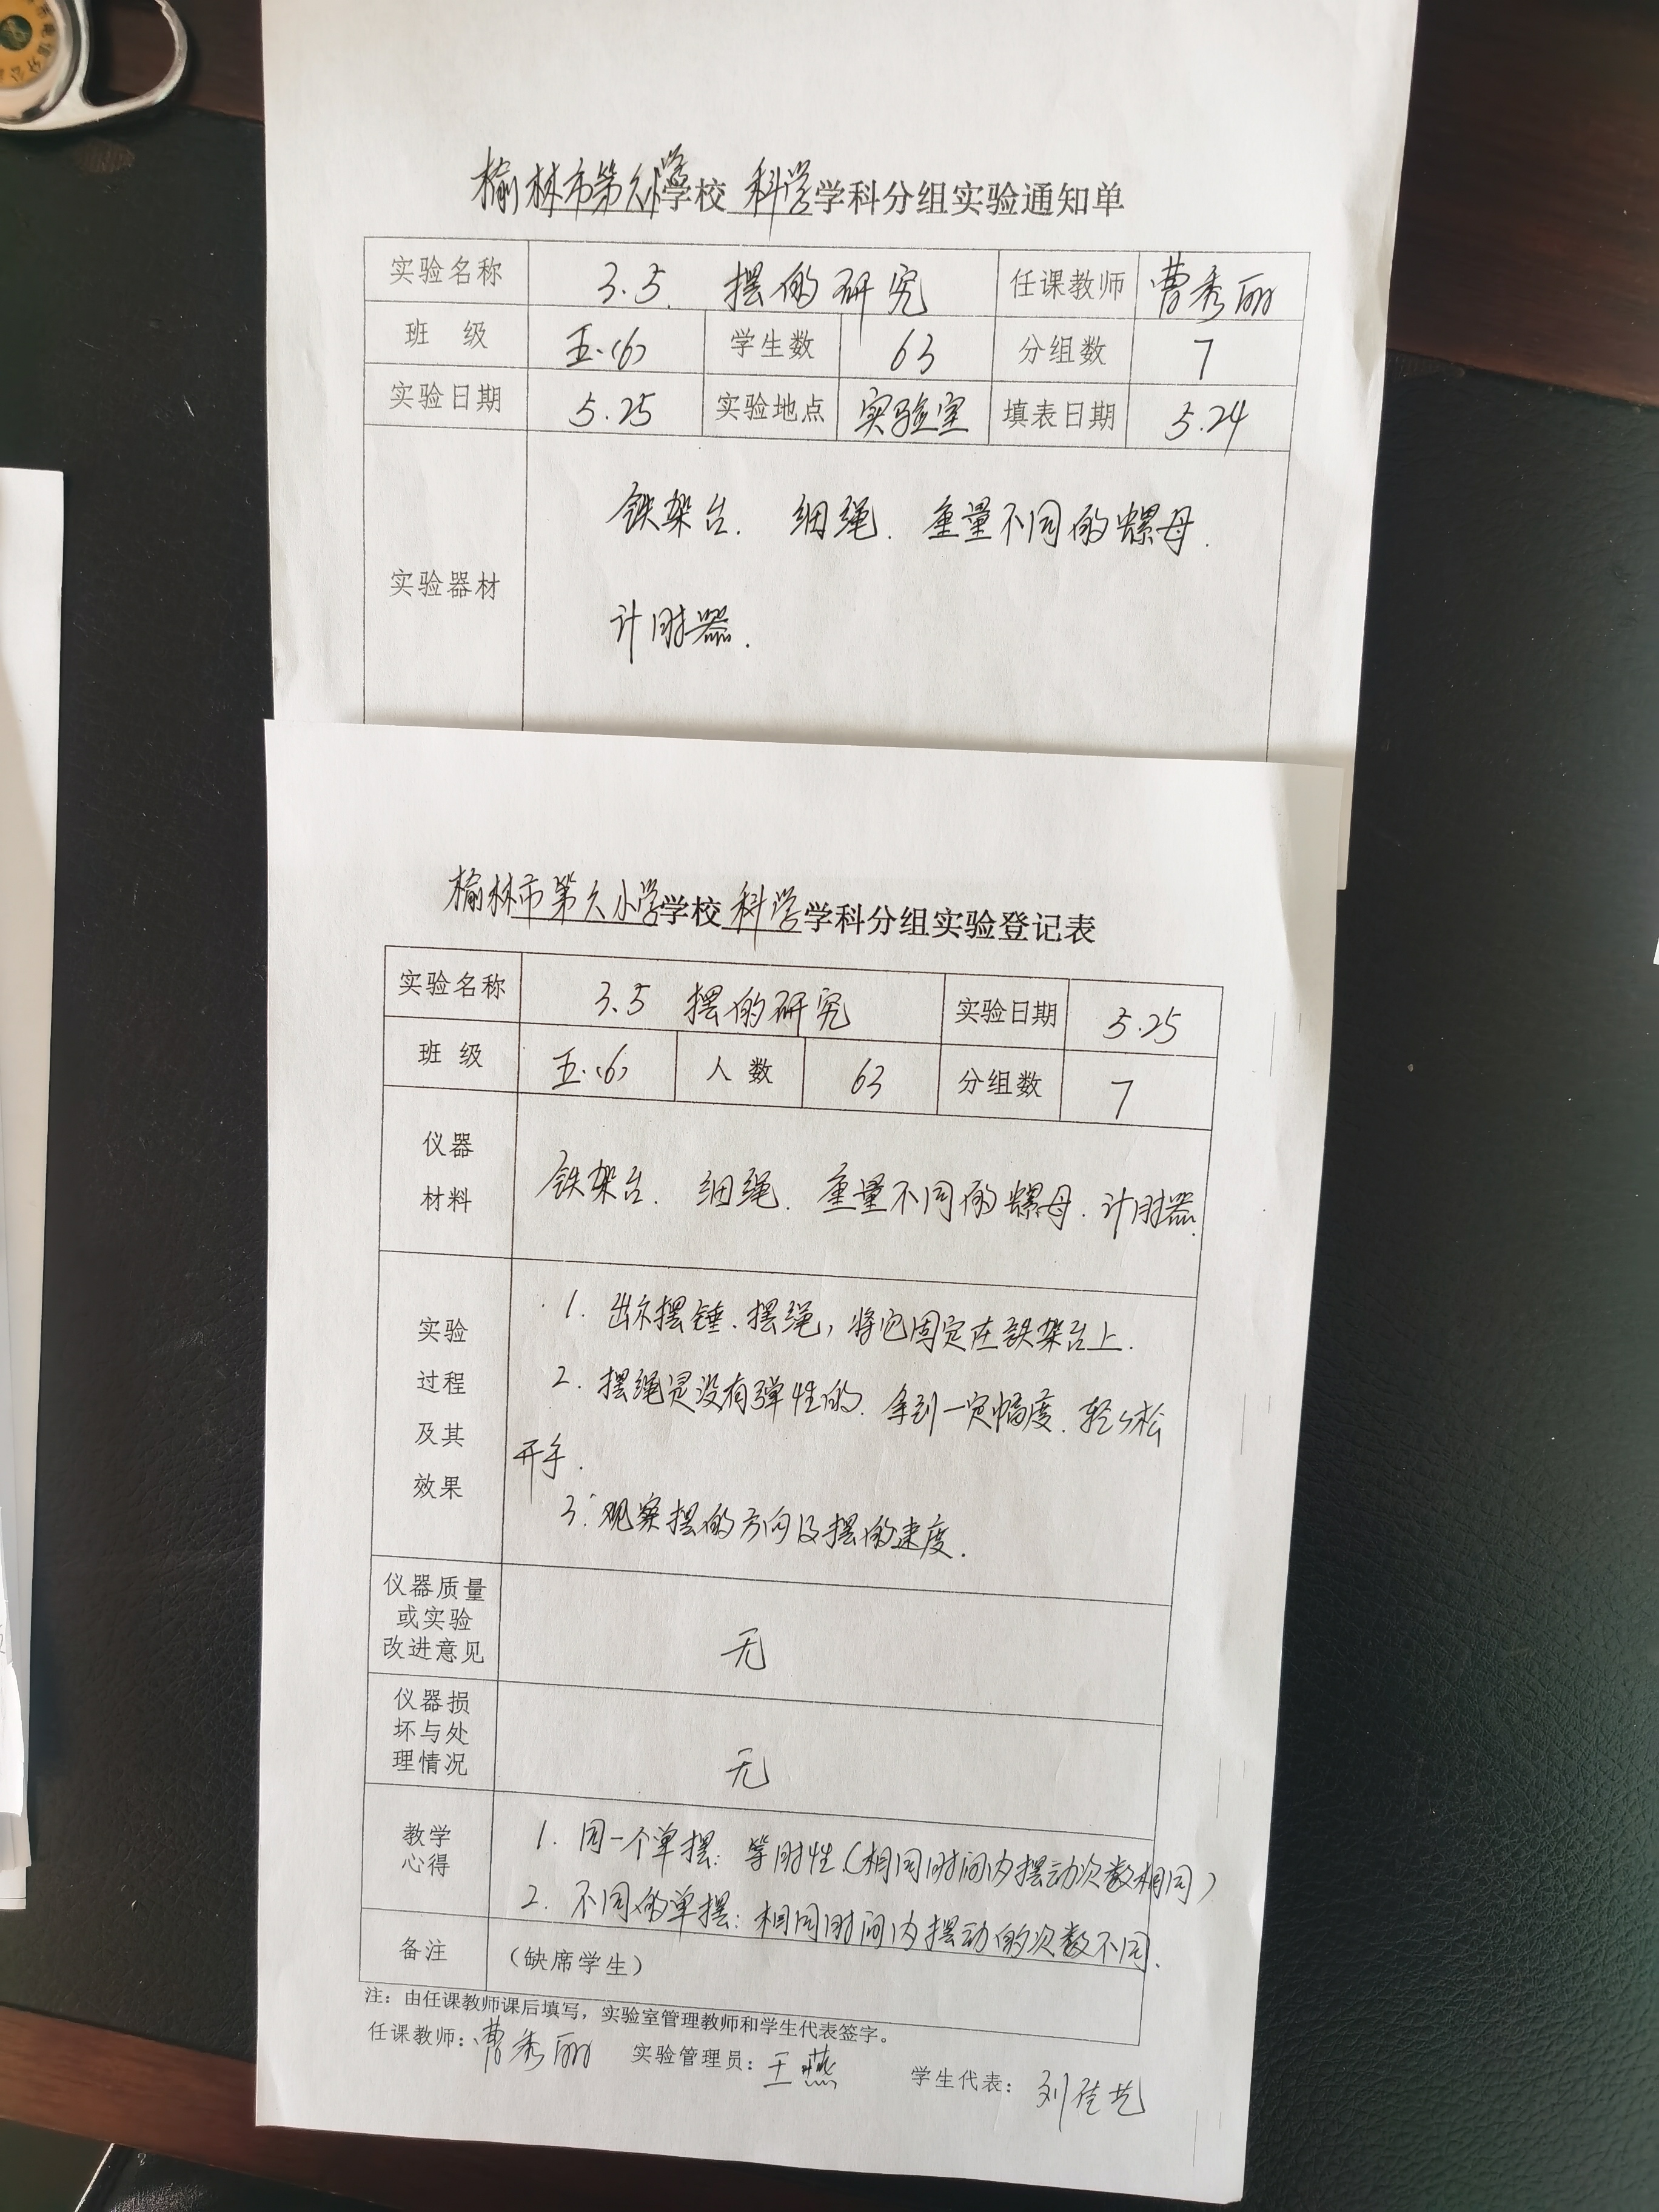 榆林市第六小学学校 科学学科分组实验通知单
实验名称 3.5. 摆的研究 任课教师 曹秀丽
班 级 五.(6) 学生数 63 分组数 7
实验日期 5.25 实验地点 实验室 填表日期 5.24
铁架台. 细绳. 重量不同的螺母.
实验器材
计时器.
榆林市第六小学学校 科学学科分组实验登记表
实验名称 3.5 摆的研究 实验日期 5.25
班 级 五.(6) 人 数 63 分组数 7
仪器
材料
铁架台. 细绳. 重量不同的螺母. 计时器.
实验
过程
及其
效果
1. 出示摆锤.摆绳,将它固定在铁架台上.
2. 摆绳是没有弹性的. 拿到一定幅度. 轻轻松
开手.
3. 观察摆的方向及摆的速度.
仪器质量
或实验
改进意见
无
仪器损
坏与处
理情况
无
教学
心得
1. 同一个单摆: 等时性.(相同时间内摆动次数相同)
2. 不同的单摆: 相同时间内摆动的次数不同.
备注 (缺席学生)
注: 由任课教师课后填写, 实验室管理教师和学生代表签字。
任课教师: 曹秀丽 实验管理员: 王燕 学生代表: 刘佳艺